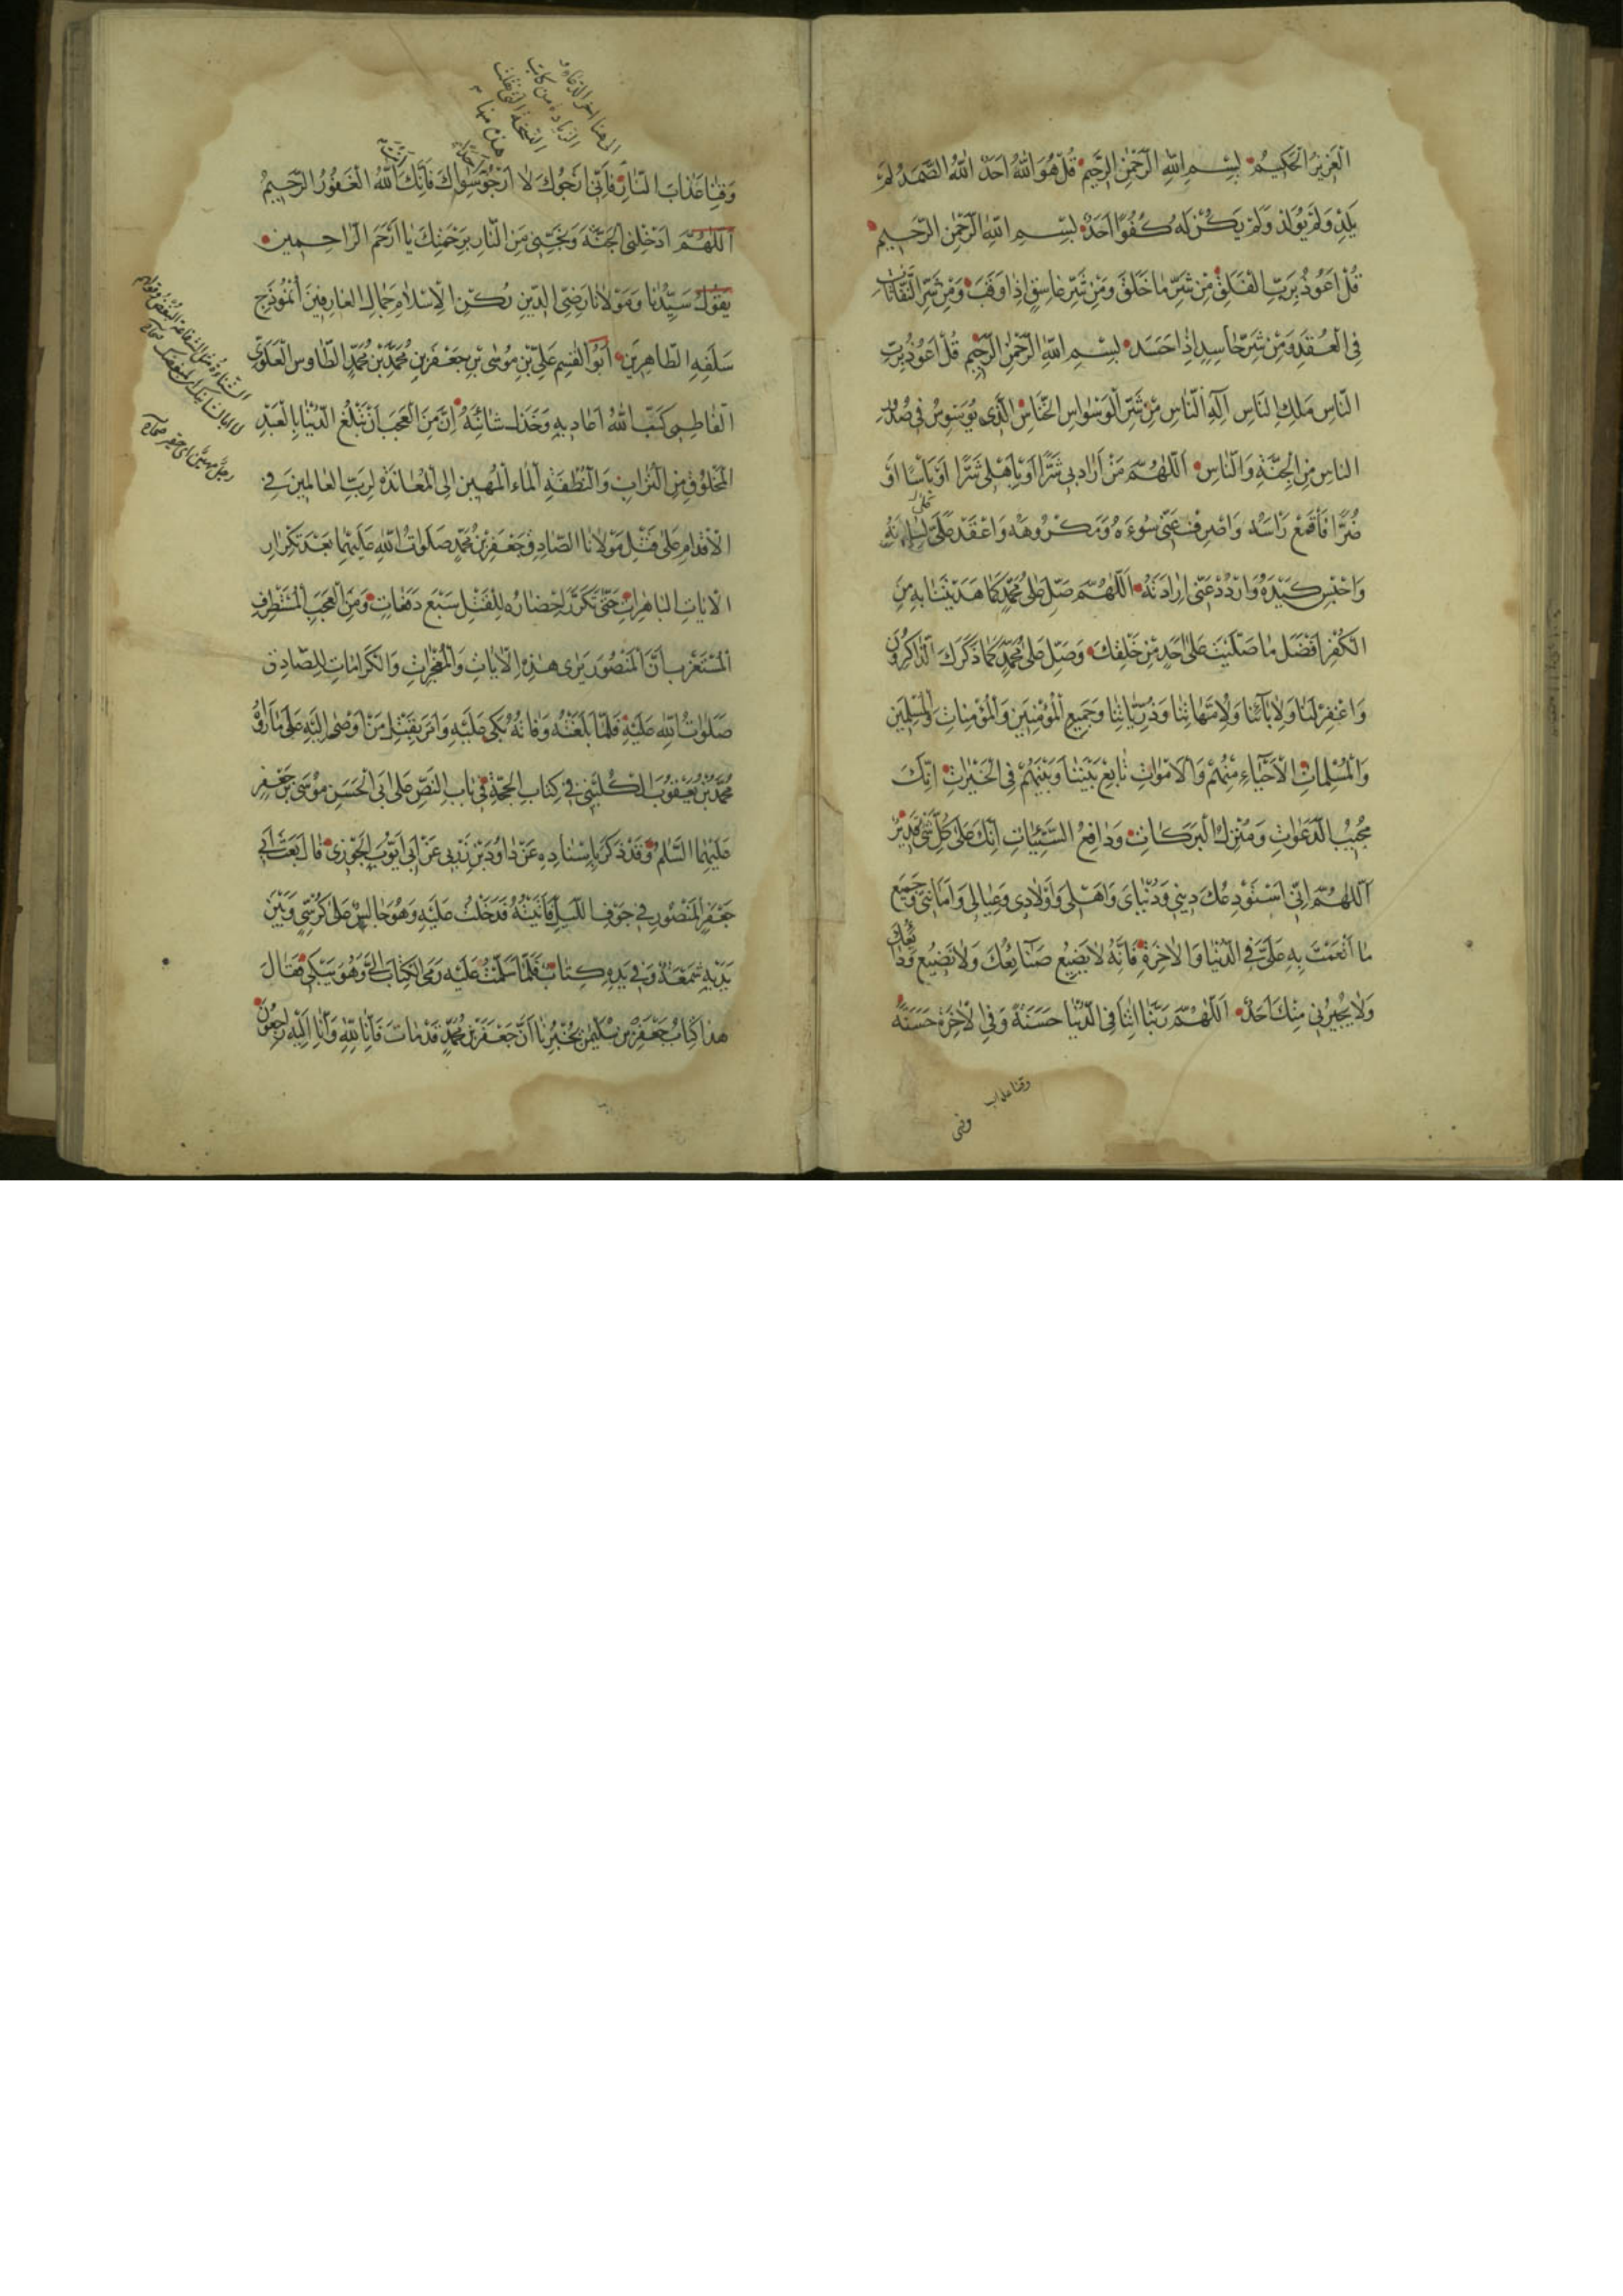 اَلْعَزِيزُ الْحَكِيمُ بِسْمِ اللّٰهِ الرَّحْمٰنِ الرَّحِيمِ قُلْ هُوَ اللّٰهُ اَحَدٌ اَللّٰهُ الصَّمَدُ لَمْ
يَلِدْ وَلَمْ يُولَدْ وَلَمْ يَكُنْ لَهُ كُفُوًا اَحَدٌ بِسْمِ اللّٰهِ الرَّحْمٰنِ الرَّحِيمِ
قُلْ اَعُوذُ بِرَبِّ الْفَلَقِ مِنْ شَرِّ مَا خَلَقَ وَمِنْ شَرِّ غَاسِقٍ اِذَا وَقَبَ وَمِنْ شَرِّ النَّفَّاثَاتِ
فِي الْعُقَدِ وَمِنْ شَرِّ حَاسِدٍ اِذَا حَسَدَ بِسْمِ اللّٰهِ الرَّحْمٰنِ الرَّحِيمِ قُلْ اَعُوذُ بِرَبِّ
النَّاسِ مَلِكِ النَّاسِ اِلٰهِ النَّاسِ مِنْ شَرِّ الْوَسْوَاسِ الْخَنَّاسِ الَّذِي يُوَسْوِسُ فِي صُدُورِ
النَّاسِ مِنَ الْجِنَّةِ وَالنَّاسِ اَللّٰهُمَّ مَنْ اَرَادَ بِي شَرًّا اَوْ بِاَهْلِي شَرًّا اَوْ بَاْسًا اَوْ
ضُرًّا فَاقْمَعْ رَاْسَهُ وَاصْرِفْ عَنِّي سُوءَهُ وَمَكْرُوهَهُ وَاعْقُدْ عَنِّي لِسَانَهُ
وَاحْبِسْ كَيْدَهُ وَارْدُدْ عَنِّي اِرَادَتَهُ اَللّٰهُمَّ صَلِّ عَلٰى مُحَمَّدٍ كَمَا هَدَيْتَنَا بِهِ مِنَ
الْكُفْرِ اَفْضَلَ مَا صَلَّيْتَ عَلٰى اَحَدٍ مِنْ خَلْقِكَ وَصَلِّ عَلٰى مُحَمَّدٍ كَمَا ذَكَرَكَ الذَّاكِرُونَ
وَاغْفِرْ لَنَا وَلِاٰبَائِنَا وَلِاُمَّهَاتِنَا وَذُرِّيَّاتِنَا وَجَمِيعِ الْمُؤْمِنِينَ وَالْمُؤْمِنَاتِ وَالْمُسْلِمِينَ
وَالْمُسْلِمَاتِ الْاَحْيَاءِ مِنْهُمْ وَالْاَمْوَاتِ تَابِعْ بَيْنَنَا وَبَيْنَهُمْ فِي الْخَيْرَاتِ اِنَّكَ
مُجِيبُ الدَّعَوَاتِ وَمُنْزِلُ الْبَرَكَاتِ وَدَافِعُ السَّيِّئَاتِ اِنَّكَ عَلٰى كُلِّ شَيْءٍ قَدِيرٌ
اَللّٰهُمَّ اِنِّي اَسْتَوْدِعُكَ دِينِي وَدُنْيَايَ وَاَهْلِي وَاَوْلَادِي وَعِيَالِي وَاَمَانَتِي وَجَمِيعَ
مَا اَنْعَمْتَ بِهِ عَلَيَّ فِي الدُّنْيَا وَالْاٰخِرَةِ فَاِنَّهُ لَا يَضِيعُ صَنَائِعُكَ وَلَا تَضِيعُ وَدَائِعُكَ
وَلَا يُجِيرُنِي مِنْكَ اَحَدٌ اَللّٰهُمَّ رَبَّنَا اٰتِنَا فِي الدُّنْيَا حَسَنَةً وَفِي الْاٰخِرَةِ حَسَنَةً
وقنا عذاب
وَقِنَا عَذَابَ النَّارِ فَاِنِّي اَرْجُوكَ وَلَا اَرْجُو سِوَاكَ فَاِنَّكَ اَللّٰهُ الْغَفُورُ الرَّحِيمُ
اَللّٰهُمَّ اَدْخِلْنِي الْجَنَّةَ وَنَجِّنِي مِنَ النَّارِ بِرَحْمَتِكَ يَا اَرْحَمَ الرَّاحِمِينَ
يَقُولُ سَيِّدُنَا وَمَوْلَانَا رَضِيُّ الدِّينِ رُكْنُ الْاِسْلَامِ جَمَالُ الْعَارِفِينَ اُنْمُوذَجُ
سَلَفِهِ الطَّاهِرِينَ اَبُو الْقٰسِمِ عَلِيُّ بْنُ مُوسَى بْنِ جَعْفَرِ بْنِ مُحَمَّدِ بْنِ مُحَمَّدٍ الطَّاوسُ الْعَلَوِيُّ
الْفَاطِمِيُّ كَبَتَ اللّٰهُ اَعَادِيهِ وَخَذَلَ شَانِئَهُ اِنَّ مِنَ الْعَجَبِ اَنْ تَبْلُغَ الدُّنْيَا بِالْعَبْدِ
الْمَخْلُوقِ مِنَ التُّرَابِ وَالنُّطْفَةِ الْمَاءِ الْمَهِينِ اِلَى الْمُعَانَدَةِ لِرَبِّ الْعَالَمِينَ فِي
الْاِقْدَامِ عَلٰى قَتْلِ مَوْلَانَا الصَّادِقِ جَعْفَرِ بْنِ مُحَمَّدٍ صَلَوَاتُ اللّٰهِ عَلَيْهِمَا بَعْدَ تَكْرَارِ
الْاٰيَاتِ الْبَاهِرَاتِ حَتّٰى تَكَرَّرَ اِحْضَارُهُ لِلْقَتْلِ سَبْعَ دَفَعَاتٍ وَمِنَ الْعَجَبِ الْمُسْتَطْرَفِ
الْمُسْتَغْرَبِ اَنَّ الْمَنْصُورَ يَرٰى هٰذِهِ الْاٰيَاتِ وَالْمُعْجِزَاتِ وَالْكَرَامَاتِ لِلصَّادِقِ
صَلَوَاتُ اللّٰهِ عَلَيْهِ فَلَمَّا بَلَغَتْهُ وَفَاتُهُ بَكٰى عَلَيْهِ وَاَمَرَ بِقَتْلِ مَنْ اَوْصٰى اِلَيْهِ عَلٰى مَا رَوَاهُ
مُحَمَّدُ بْنُ يَعْقُوبَ الْكُلَيْنِيُّ فِي كِتَابِ الْحُجَّةِ فِي بَابِ النَّصِّ عَلٰى اَبِي الْحَسَنِ مُوسَى بْنِ جَعْفَرٍ
عَلَيْهِمَا السَّلٰمُ وَقَدْ ذَكَرَ بِاِسْنَادِهِ عَنْ دَاوُدَ بْنِ زُرْبِي عَنْ اَبِي اَيُّوبَ الْجَوْزِي قَالَ بَعَثَ اَبِي
جَعْفَرٍ الْمَنْصُورِ فِي جَوْفِ اللَّيْلِ فَاَتَيْتُهُ فَدَخَلْتُ عَلَيْهِ وَهُوَ جَالِسٌ عَلٰى كُرْسِيٍّ وَبَيْنَ
يَدَيْهِ شَمْعَةٌ وَفِي يَدِهِ كِتَابٌ فَلَمَّا سَلَّمْتُ عَلَيْهِ رَمَى الْكِتَابَ اِلَيَّ وَهُوَ يَبْكِي فَقَالَ
هٰذَا كِتَابُ جَعْفَرِ بْنِ سُلَيْمٰنَ يُخْبِرُنَا اَنَّ جَعْفَرَ بْنَ مُحَمَّدٍ قَدْ مَاتَ فَاِنَّا لِلّٰهِ وَاِنَّا اِلَيْهِ رَاجِعُونَ